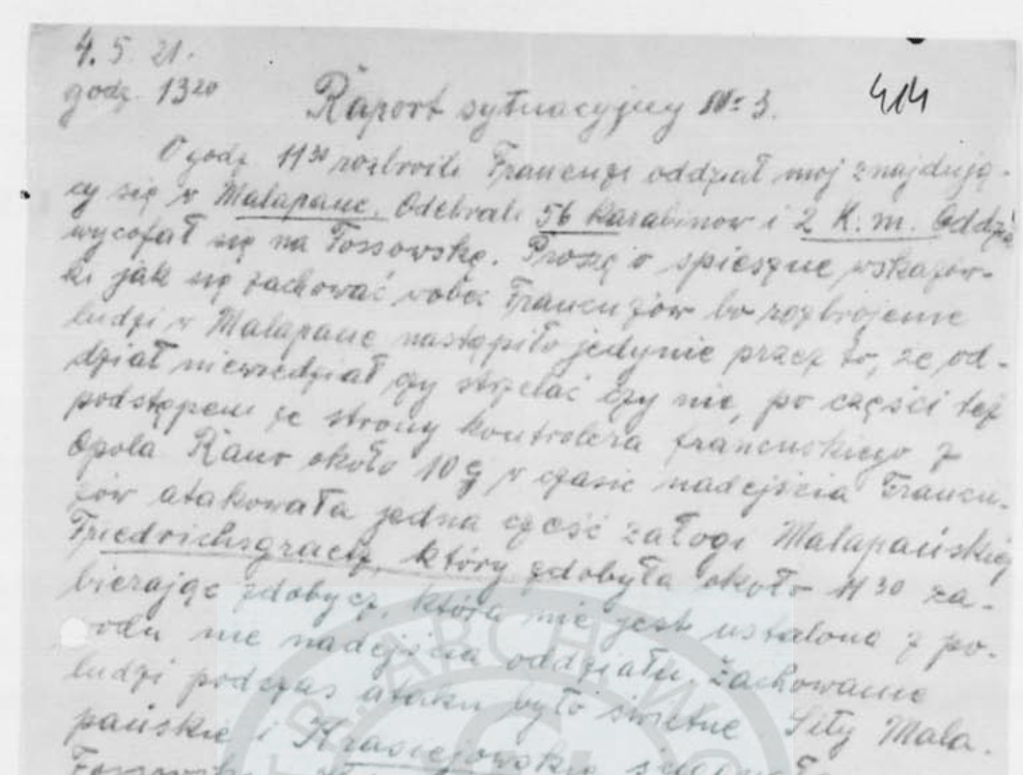 4. 5. 21.
godz. 13²⁰
Raport sytuacyjny Nº 3.
414
O godz. 11³⁰ rozbroili Francuzi oddział moj znajdują-
cy się w Malapane. Odebrali 56 karabinow i 2 K. m. Oddzia
wycofał się na Fossowskę. Proszę o spieszne wskazów-
ki jak się zachować wobec Francuzów bo rozbrojenie
ludzi w Malapane nastąpiło jedynie przez to, że od-
dział niewiedział czy strzelać czy nie, po części też
podstępem ze strony kontrolera francuskiego z
Opola Rano około 10 g w czasie nadejścia Francu-
zów atakowała jedna część załogi Malapańskiej
Friedrichsgraetz, który zdobyła około 11³⁰ za-
bierając zdobycz, która nie jest ustalona z po-
wodu nie nadejścia oddziału. Zachowanie
ludzi podczas ataku było świetne Siły Mala-
pańskie i Krasiejowskie
Fossowsk
ARCHIW